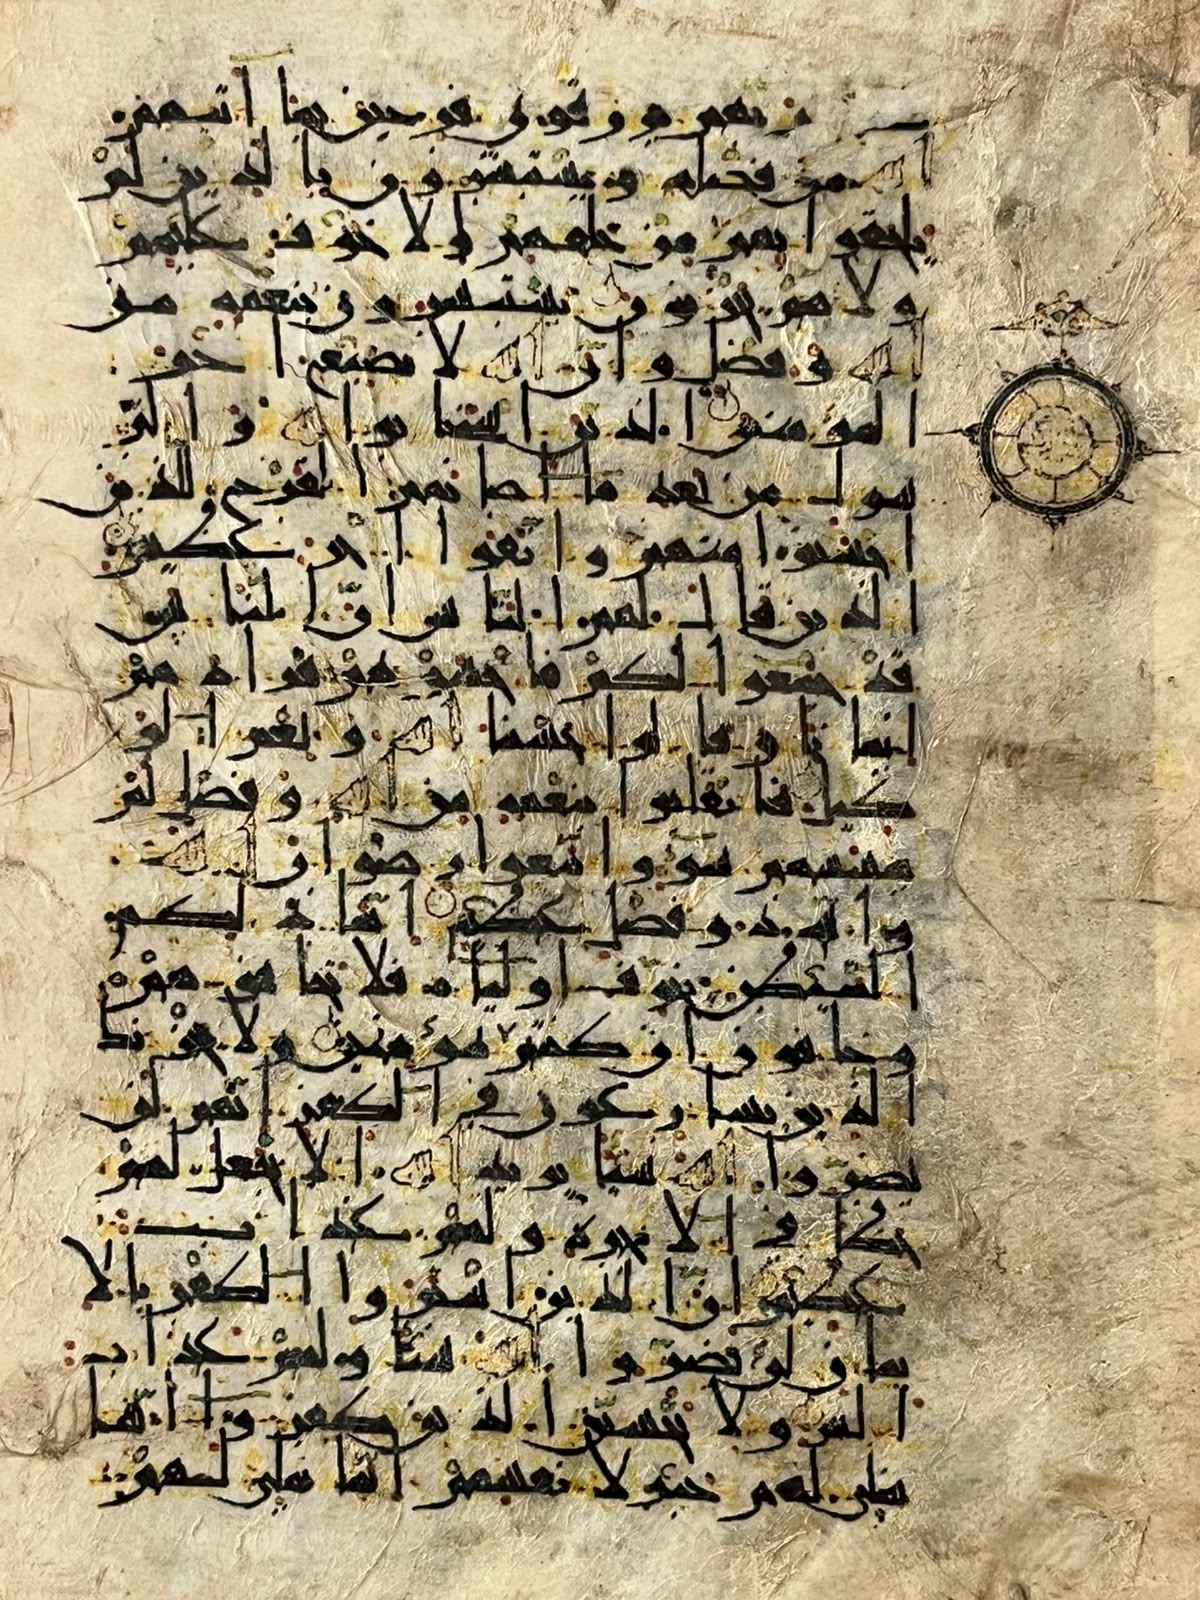 ربهم يرزقون فرحين بما اتيهم
الله من فضله ويستبشرون بالذين لم
يلحقوا بهم من خلفهم الا خوف عليهم
ولا هم يحزنون يستبشرون بنعمة من
الله وفضل وان الله لا يضيع اجر
المؤمنين الذين استجابوا لله والر
سول من بعد ما اصابهم القرح للذين
احسنوا منهم واتقوا اجر عظيم
الذين قال لهم الناس ان الناس
قد جمعوا لكم فاخشوهم فزادهم
ايمانا وقالوا حسبنا الله ونعم الو
كيل فانقلبوا بنعمة من الله وفضل لم
يمسسهم سوء واتبعوا رضوان الله
والله ذو فضل عظيم انما ذلكم
الشيطن يخوف اولياءه فلا تخافوهم
وخافون ان كنتم مؤمنين ولا يحزنك
الذين يسارعون في الكفر انهم لن
يضروا الله شيئا يريد الله الا يجعل لهم
حظا في الاخرة ولهم عذاب
عظيم ان الذين اشتروا الكفر بالا
يمان لن يضروا الله شيئا ولهم عذاب
اليم ولا يحسبن الذين كفروا انما
نملي لهم خير لانفسهم انما نملي لهم